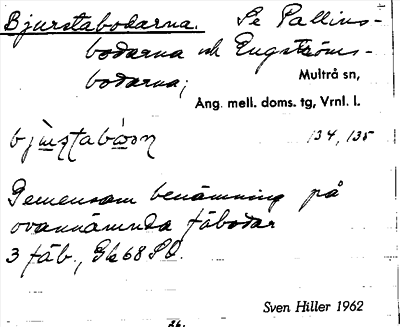 Bjurstabodarna. Se Pallins-
bodarna och Engströms-
bodarna;
Multrå sn,
Ång. mell. doms. tg, Vrnl. l.
134, 135
Gemensam benämning på
ovannämnda fäbodar
3 fäb., Gk 68 SO.
Sven Hiller 1962